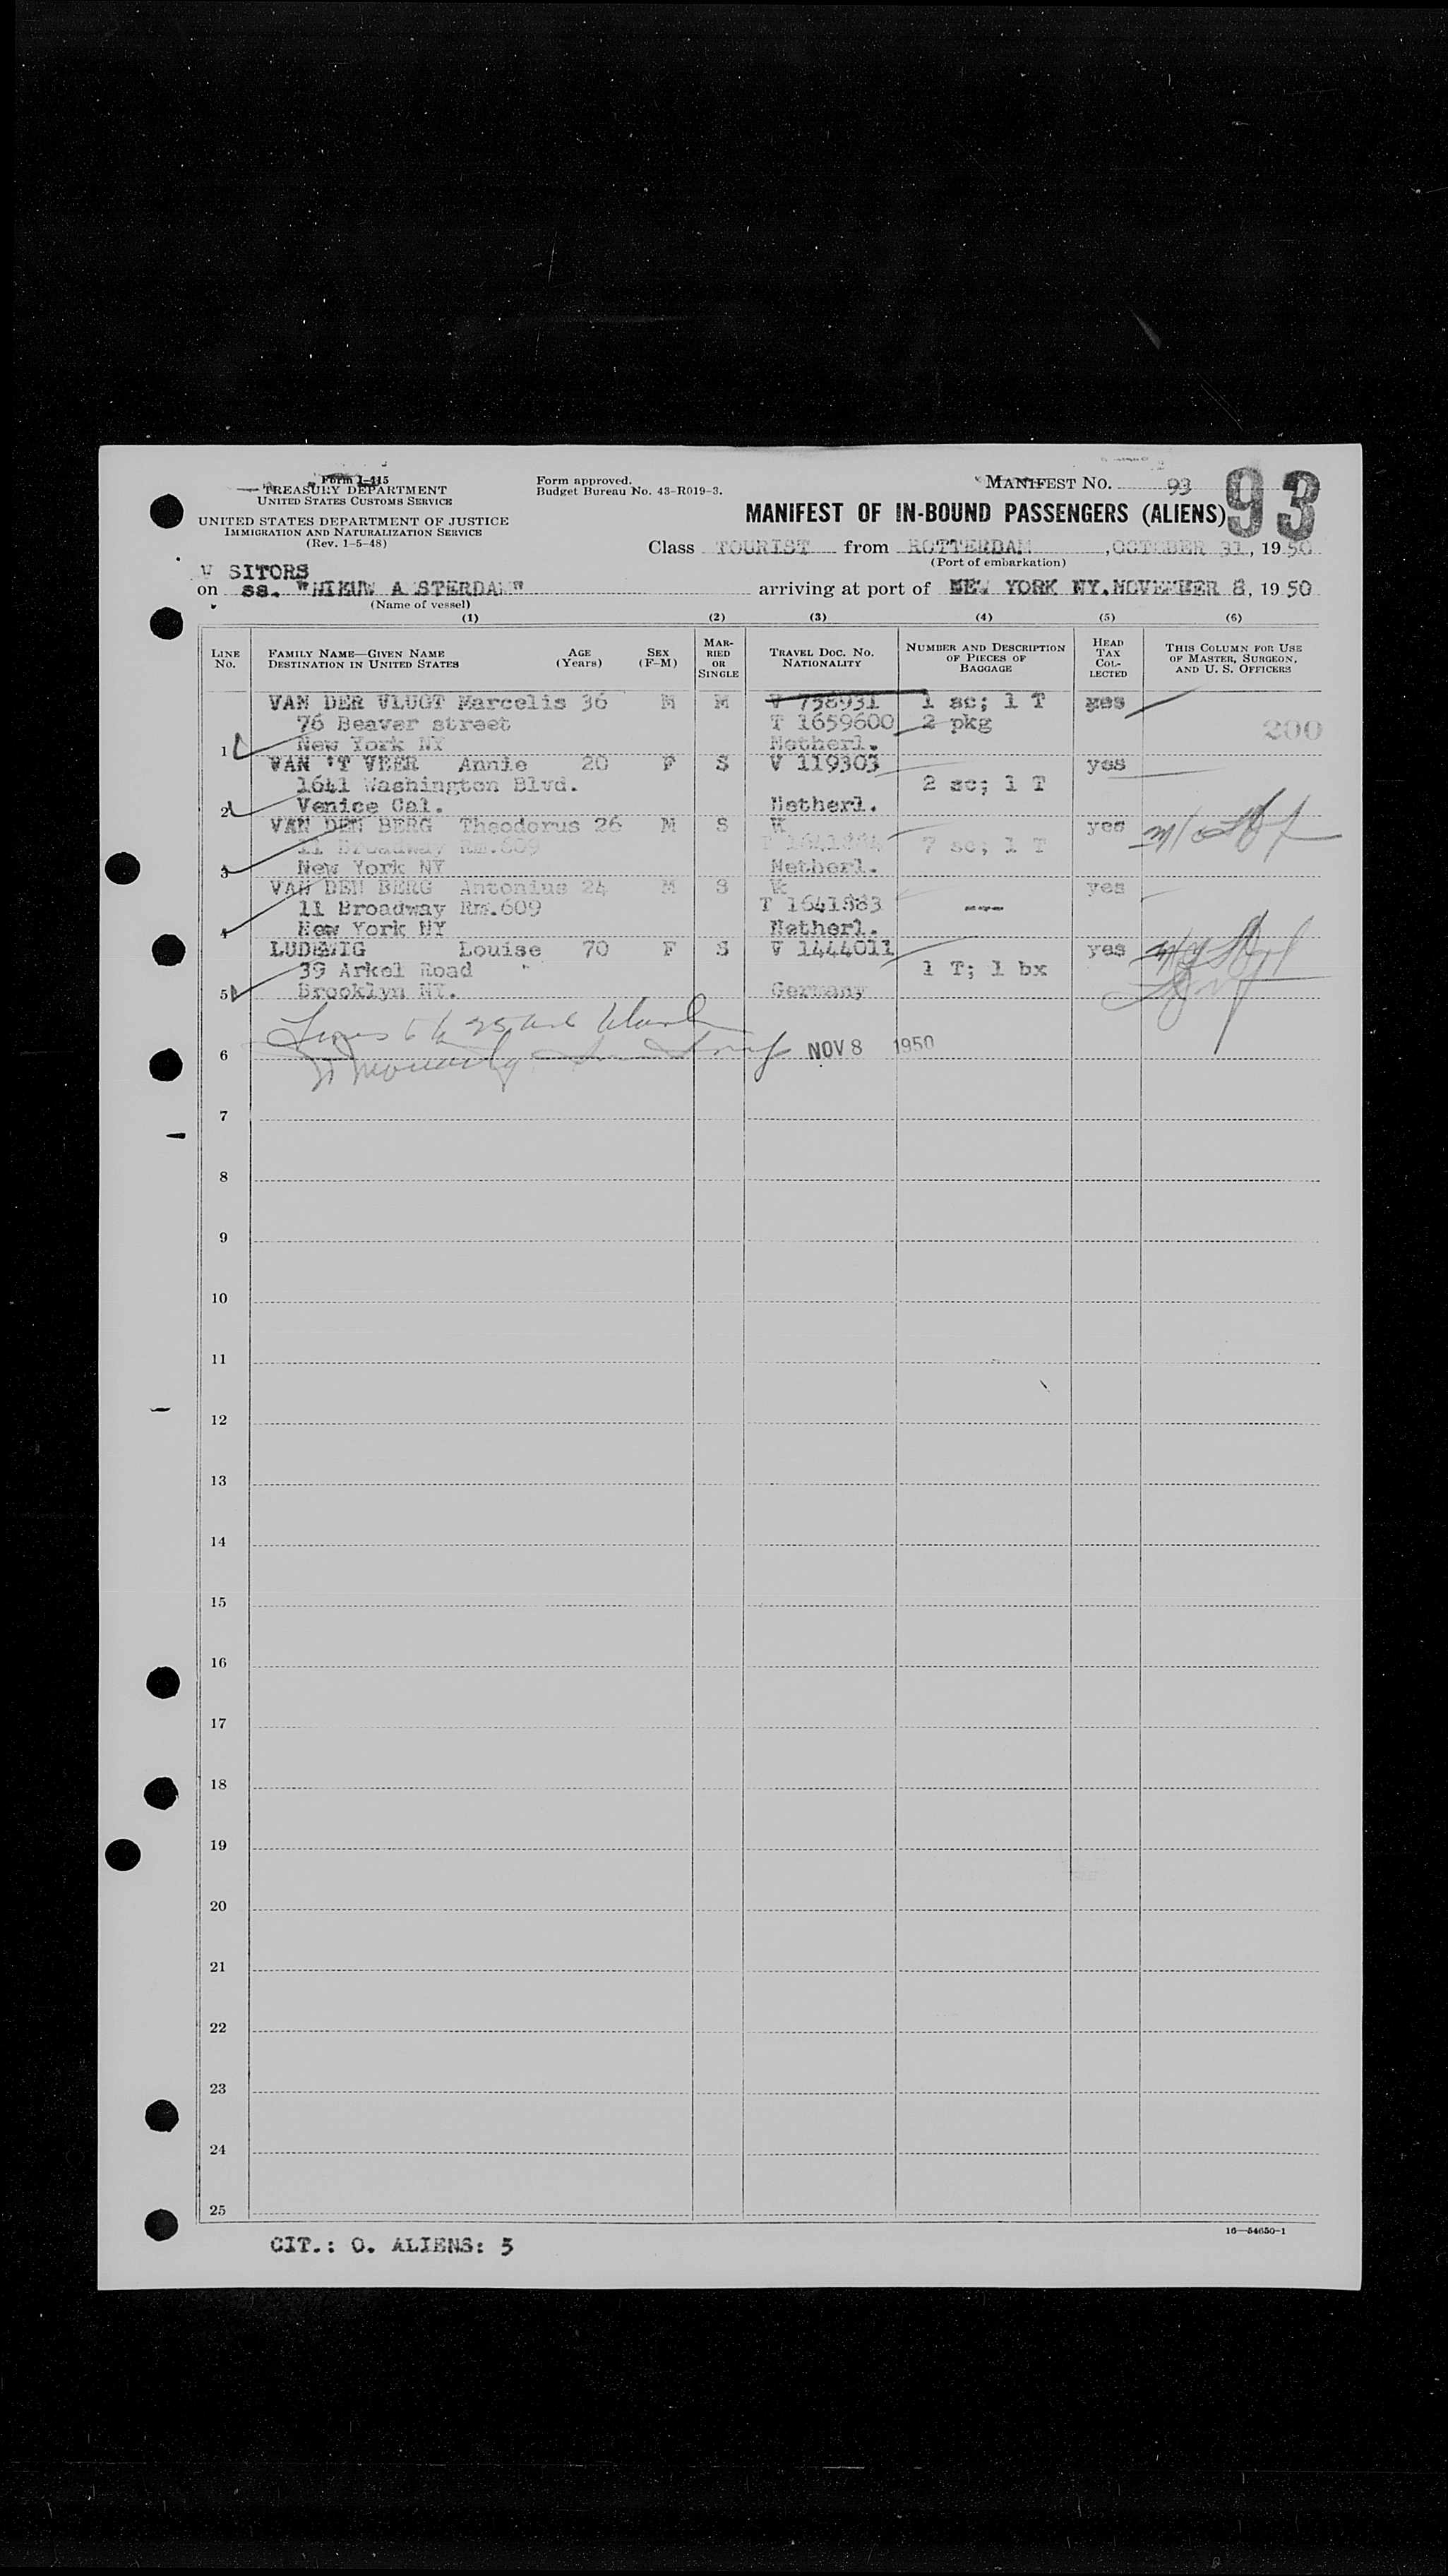 Form I-415
TREASURY DEPARTMENT
UNITED STATES CUSTOMS SERVICE
UNITED STATES DEPARTMENT OF JUSTICE
IMMIGRATION AND NATURALIZATION SERVICE
(Rev. 1-5-48)
Form approved.
Budget Bureau No. 43-R019-3.
MANIFEST NO. 93
93
MANIFEST OF IN-BOUND PASSENGERS (ALIENS)
Class TOURIST from ROTTERDAM, OCTOBER 31, 1950
(Port of embarkation)
V SITORS
on ss. "NIEUW A STERDAM" arriving at port of NEW YORK NY. NOVEMBER 8, 1950
(Name of vessel)
(1) (2) (3) (4) (5) (6)
LINE NO. FAMILY NAME—GIVEN NAME DESTINATION IN UNITED STATES AGE (Years) SEX (F-M) MARRIED OR SINGLE TRAVEL DOC. NO. NATIONALITY NUMBER AND DESCRIPTION OF PIECES OF BAGGAGE HEAD TAX COLLECTED THIS COLUMN FOR USE OF MASTER, SURGEON, AND U. S. OFFICERS
VAN DER VLUGT Marcelis 36 M M V 758931 1 sc; 1 T yes
76 Beaver street T 1659600 2 pkg 200
1 New York NY Netherl.
VAN 'T VEER Annie 20 F S V 119303 yes
1641 Washington Blvd. 2 sc; 1 T
2 Venice Cal. Netherl.
VAN DEN BERG Theodorus 26 M S yes
11 Broadway Rm.609 7 sc; 1 T
3 New York NY Netherl.
VAN DEN BERG Antonius 24 M S yes
11 Broadway Rm.609 T 1641883 ---
4 New York NY Netherl.
LUDEWIG Louise 70 F S V 1444011 yes
39 Arkel Road 1 T; 1 bx
5 Brooklyn NY. Germany
6 NOV 8 1950
7
8
9
10
11
12
13
14
15
16
17
18
19
20
21
22
23
24
25
16—54650-1
CIT.: 0. ALIENS: 5